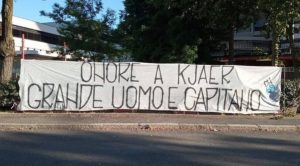 ONORE A KJAER
GRANDE UOMO E CAPITANO